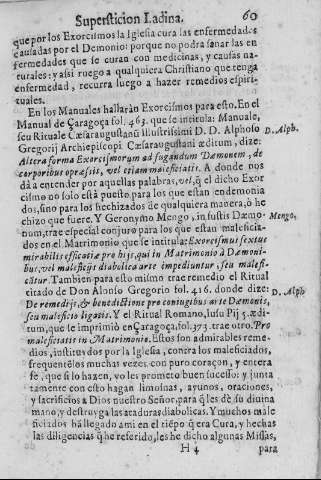 Supersticion Ladina. 60
que por los Exorcismos la Iglesia cura las enfermedades
causadas por el Demonio: porque no podra sanar las en
fermedades que se curan con medicinas, y causas na-
turales: y assi ruego a qualquiera Christiano que tenga
enfermedad, recurra luego a hazer remedios espiri-
tuales.
En los Manuales hallaràn Exorcismos para esto. En el
Manual de Çaragoça fol. 463. que se intitula: Manuale,
seu Rituale Cæsaraugustanũ Illustrissimi D. D. Alphoso D. Alph.
Gregorij Archiepiscopi Cæsaraugustani æditum, dize:
Altera forma Exorcismorum ad fugandum Dæmonem, de
corporibus opræsis, vel etiam maleficiatis. A donde nos
dà a entender por aquellas palabras, vel, q̃ el dicho Exor
cismo no solo està puesto para los que estan endemonia
dos, sino para los hechizados de qualquiera manera, ò he
chizo que fuere. Y Geronymo Mengo, in fustis Dæmo- Mengo,
num, trae especial conjuro para los que estan maleficia-
dos en el Matrimonio que se intitula: Exorcismus sextus
mirabilis efficatiæ pro hijs, qui in Matrimonio à Dæmoni
bus, vel maleficijs diabolica arte impediuntur, seu malefi-
catur. Tambien para esto mismo trae remedio el Ritual
citado de Don Alonso Gregorio fol. 416. donde dize: D. Alph
De remedijs, & benedictione pro coniugibus arte Dæmonis,
seu maleficio ligatis. Y el Ritual Romano, iusu Pij 5. ædi-
tum, que se imprimiò en Çaragoça, fol. 173. trae otro. Pro
maleficiatis in Matrimonio. Estos son admirables reme-
dios, instituydos por la Iglesia, contra los maleficiados,
frequentẽlos muchas vezes con puro coraçon, y entera
fè, que si lo hazen, yo les prometo buen sucesso: y junta
tamente con esto hagan limosnas, ayunos, oraciones,
y sacrificios a Dios nuestro Señor, para q̃ les dè su divina
mano, y destruyga las ataduras diabolicas. Y muchos male
ficiados hã llegado ami en el tiẽpo q̃ era Cura, y hechas
las diligencias q̃ he referido, les he dicho algunas Missas,
H 4 para